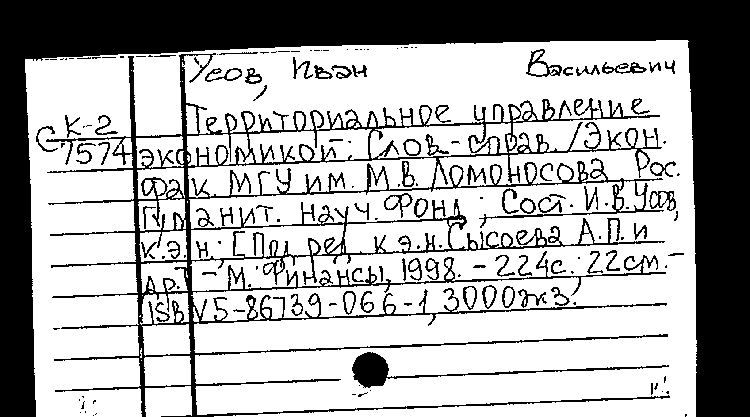 Усов, Иван Васильевич
К-2 Территориальное управление
С 7574 экономикой: Слов-справ. /Экон.
фак. МГУ им. М.В. Ломоносова, Рос.
гуманит. науч. фонд; Сост. И.В. Усов,
к.э.н.; [Под ред. к.э.н. Сысоева А.П. и
др.] - М.: Финансы, 1998. - 224с.; 22см. -
ISBN 5-86739-066-1, 3000экз.